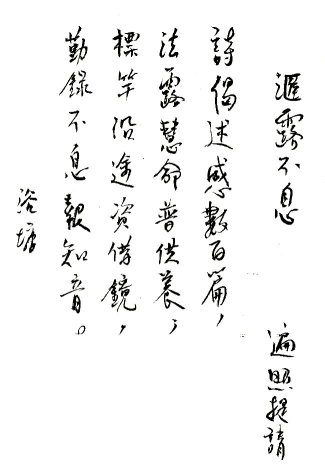 滙露不息
遍照提請
詩偈述感數百篇，
法露慧命普供養；
標竿沿途資借鏡，
勤錄不息報知音。
浴塘